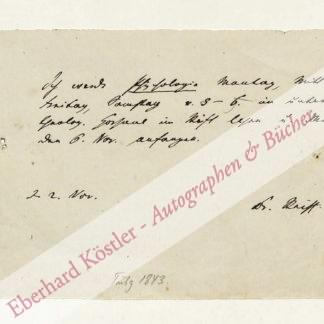 Ich werde Psychologie Montag, Mitt
Freitag, Samstag v. 5-6, im unter
Hörsaal im Stift lesen u.
den 6. Nov. anfangen.
d. 2. Nov.
Dr.
Tübg 1843.
Eberhard Köstler - Autographen & Bücher